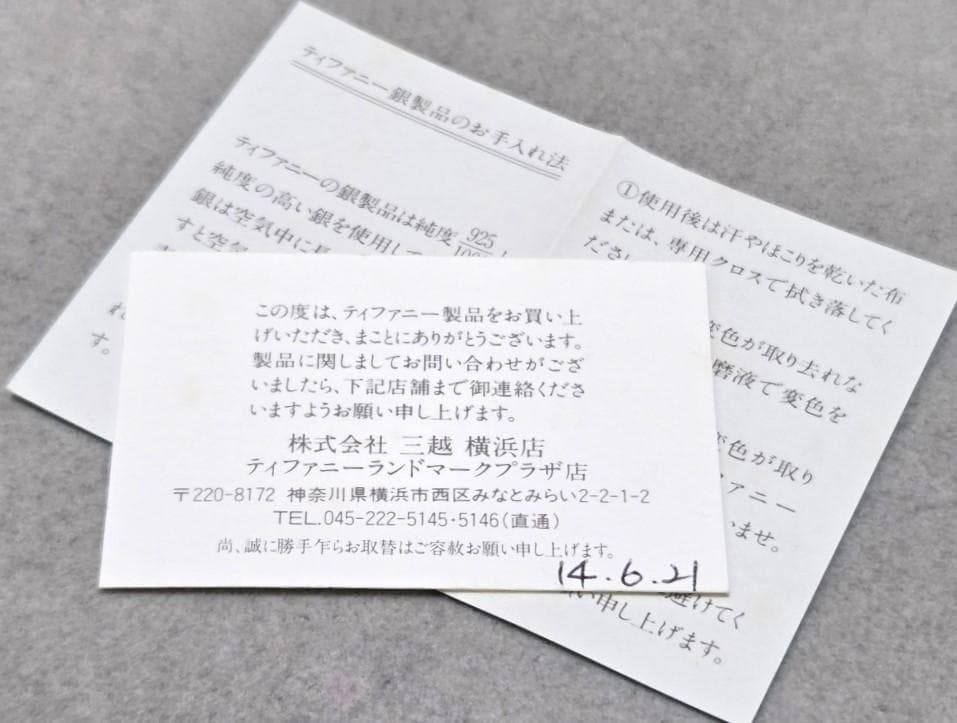 ティファニー銀製品のお手入れ法
ティファニーの銀製品は純度925
純度の高い銀を使用して
銀は空気中に
すと空気
す。
①使用後は汗やほこりを乾いた布
または、専用クロスで拭き落してく
ださい
変色が取り去れな
磨液で変色を
変色が取り
ファニー
いませ。
避けてく
い申し上げます。
この度は、ティファニー製品をお買い上
げいただき、まことにありがとうございます。
製品に関しましてお問い合わせがござ
いましたら、下記店舗まで御連絡くださ
いますようお願い申し上げます。
株式会社 三越 横浜店
ティファニーランドマークプラザ店
〒220-8172 神奈川県横浜市西区みなとみらい2-2-1-2
TEL.045-222-5145・5146(直通)
尚、誠に勝手乍らお取替はご容赦お願い申し上げます。
14.6.21